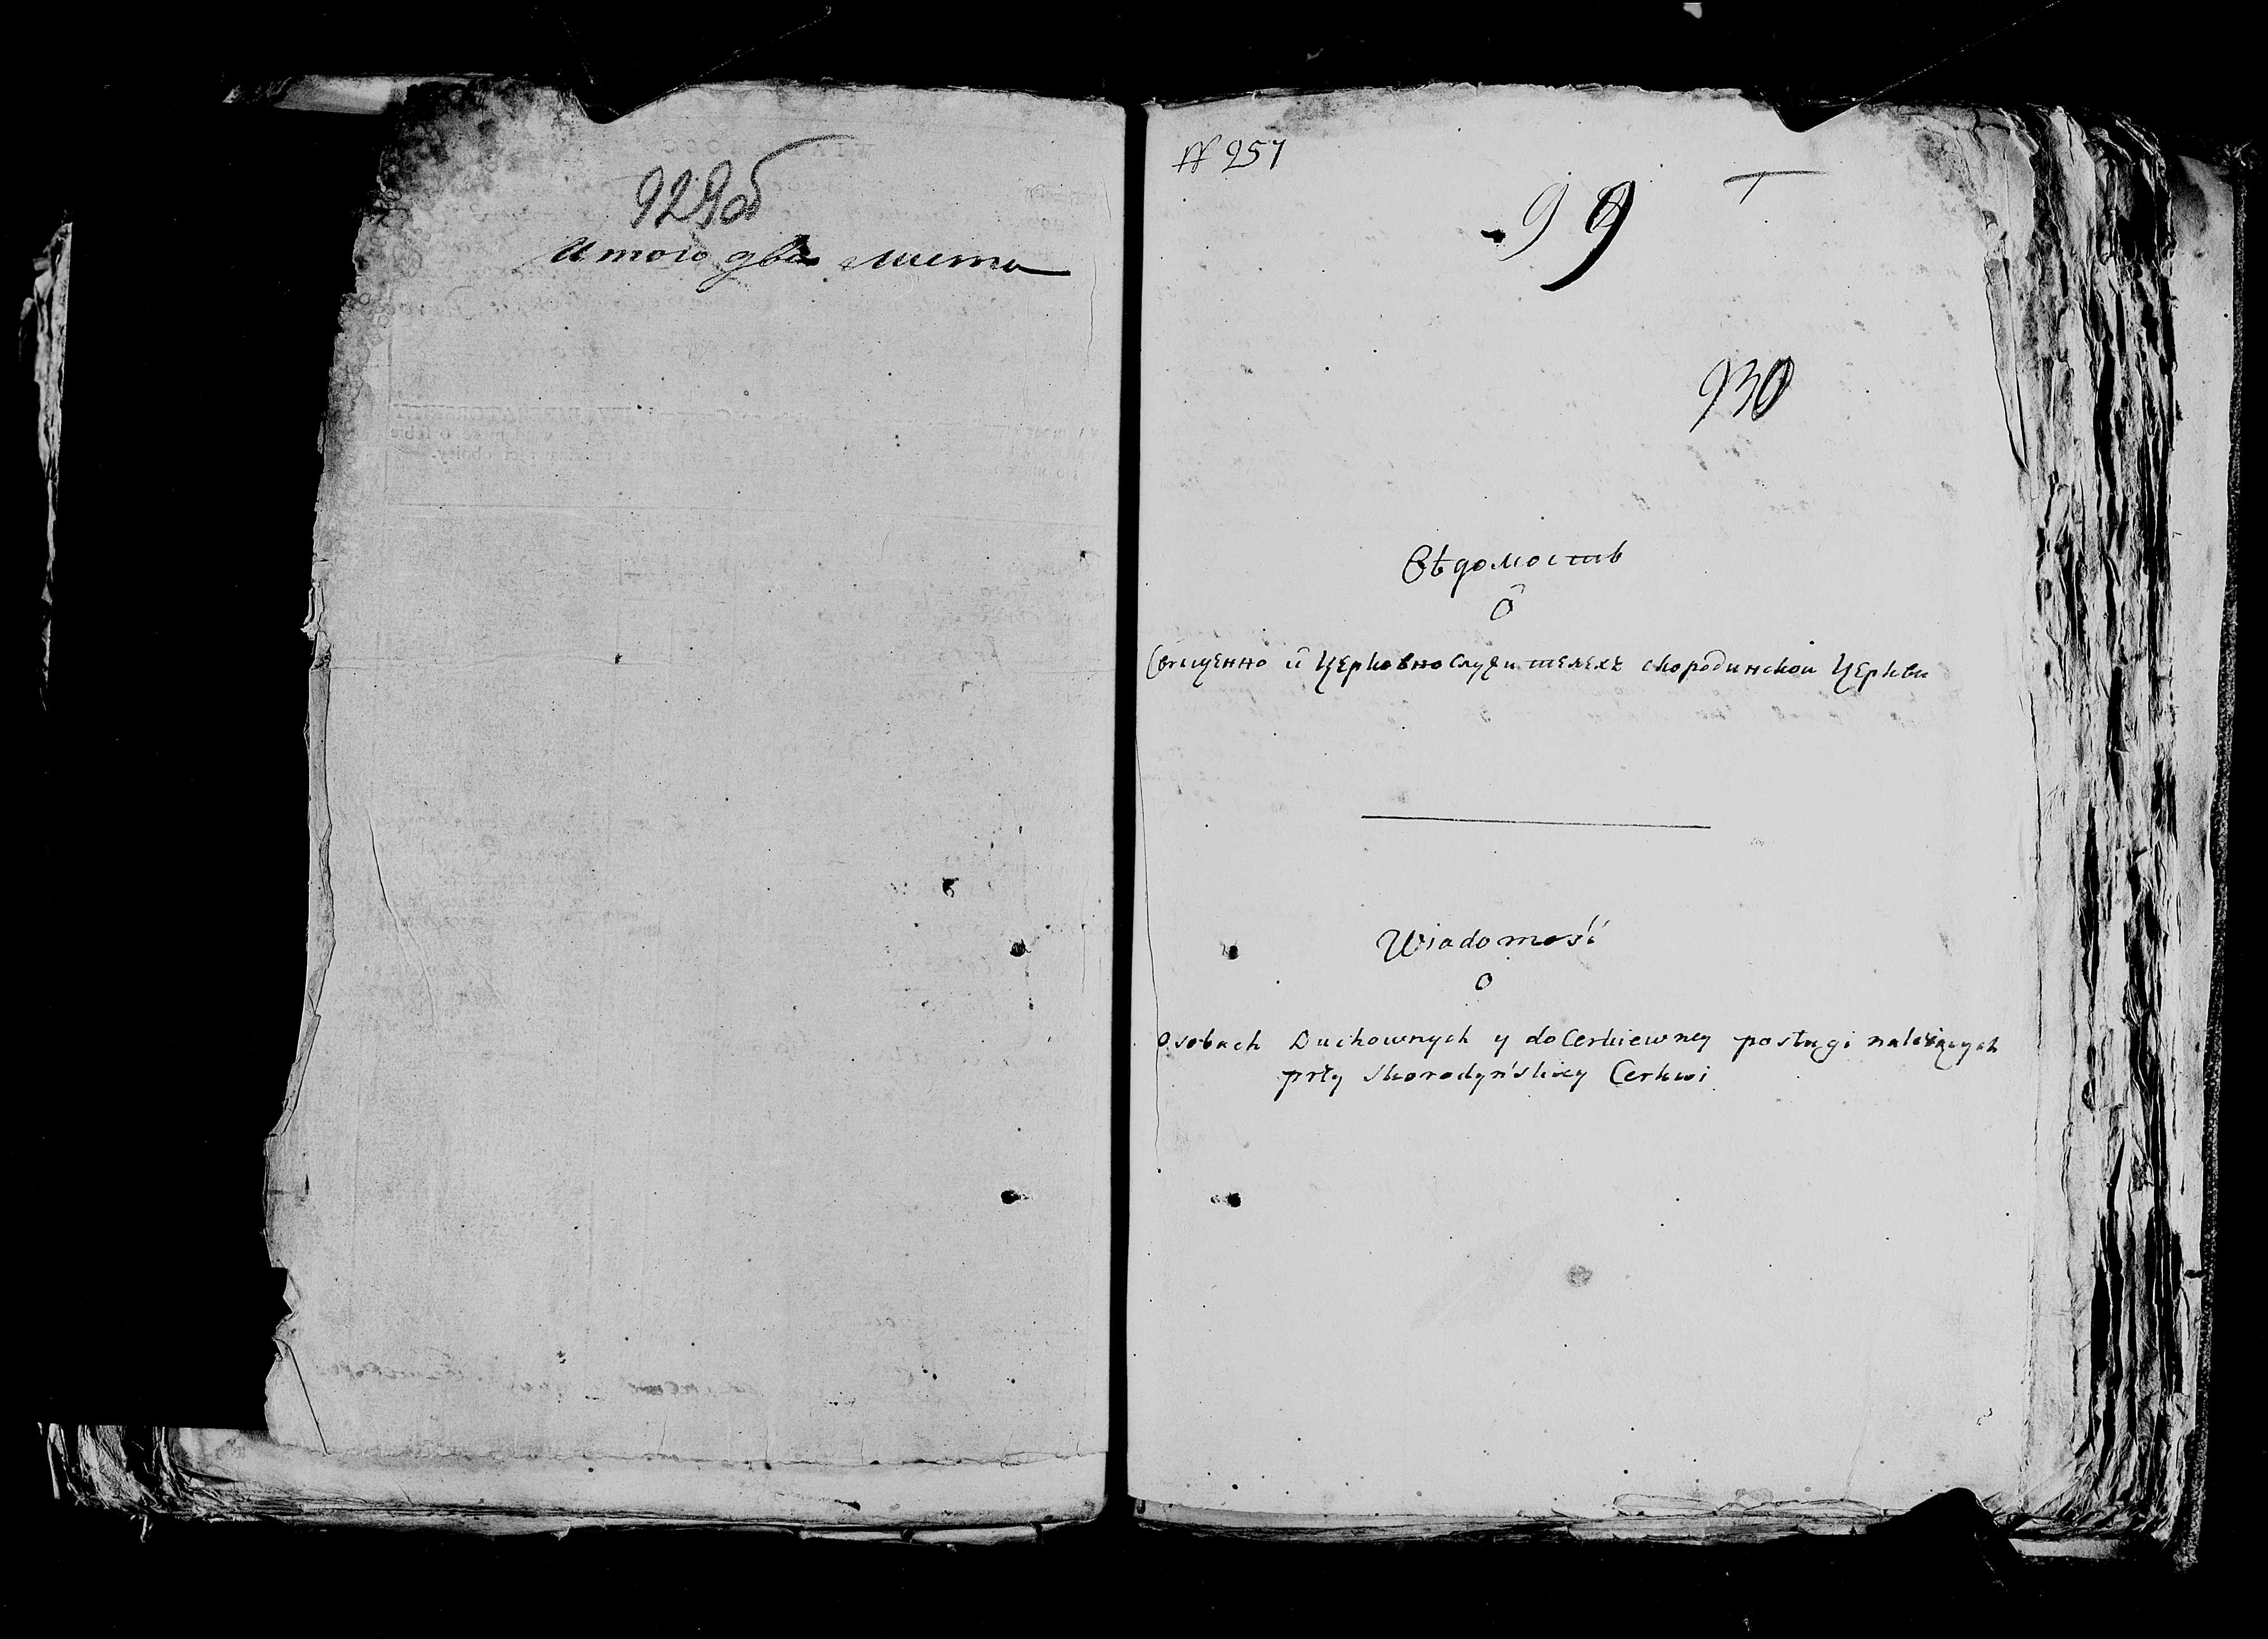 929об
Итого два листа
№ 257
99
930
Вѣдомость
о
Священно и Церковно Служителехъ скородинской Церкви
Wiadomość
o
Osobach Duchownych y do Cerkiewney posługi należących
przy Skorodyńskiey Cerkwi